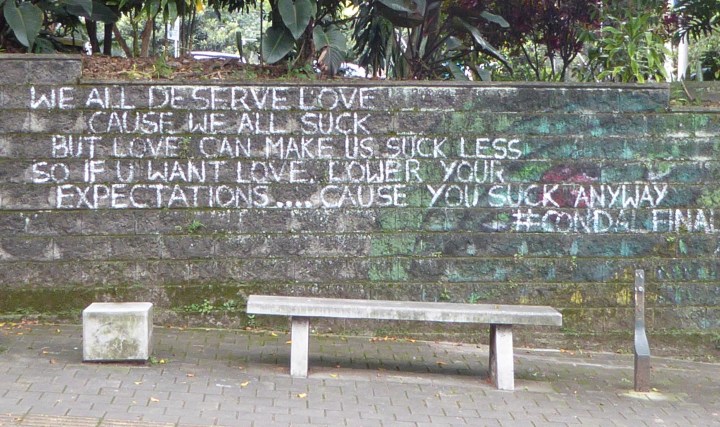 WE ALL DESERVE LOVE
CAUSE WE ALL SUCK
BUT LOVE CAN MAKE US SUCK LESS
SO IF U WANT LOVE. LOWER YOUR
EXPECTATIONS.... CAUSE YOU SUCK ANYWAY
#CONDALFINAL